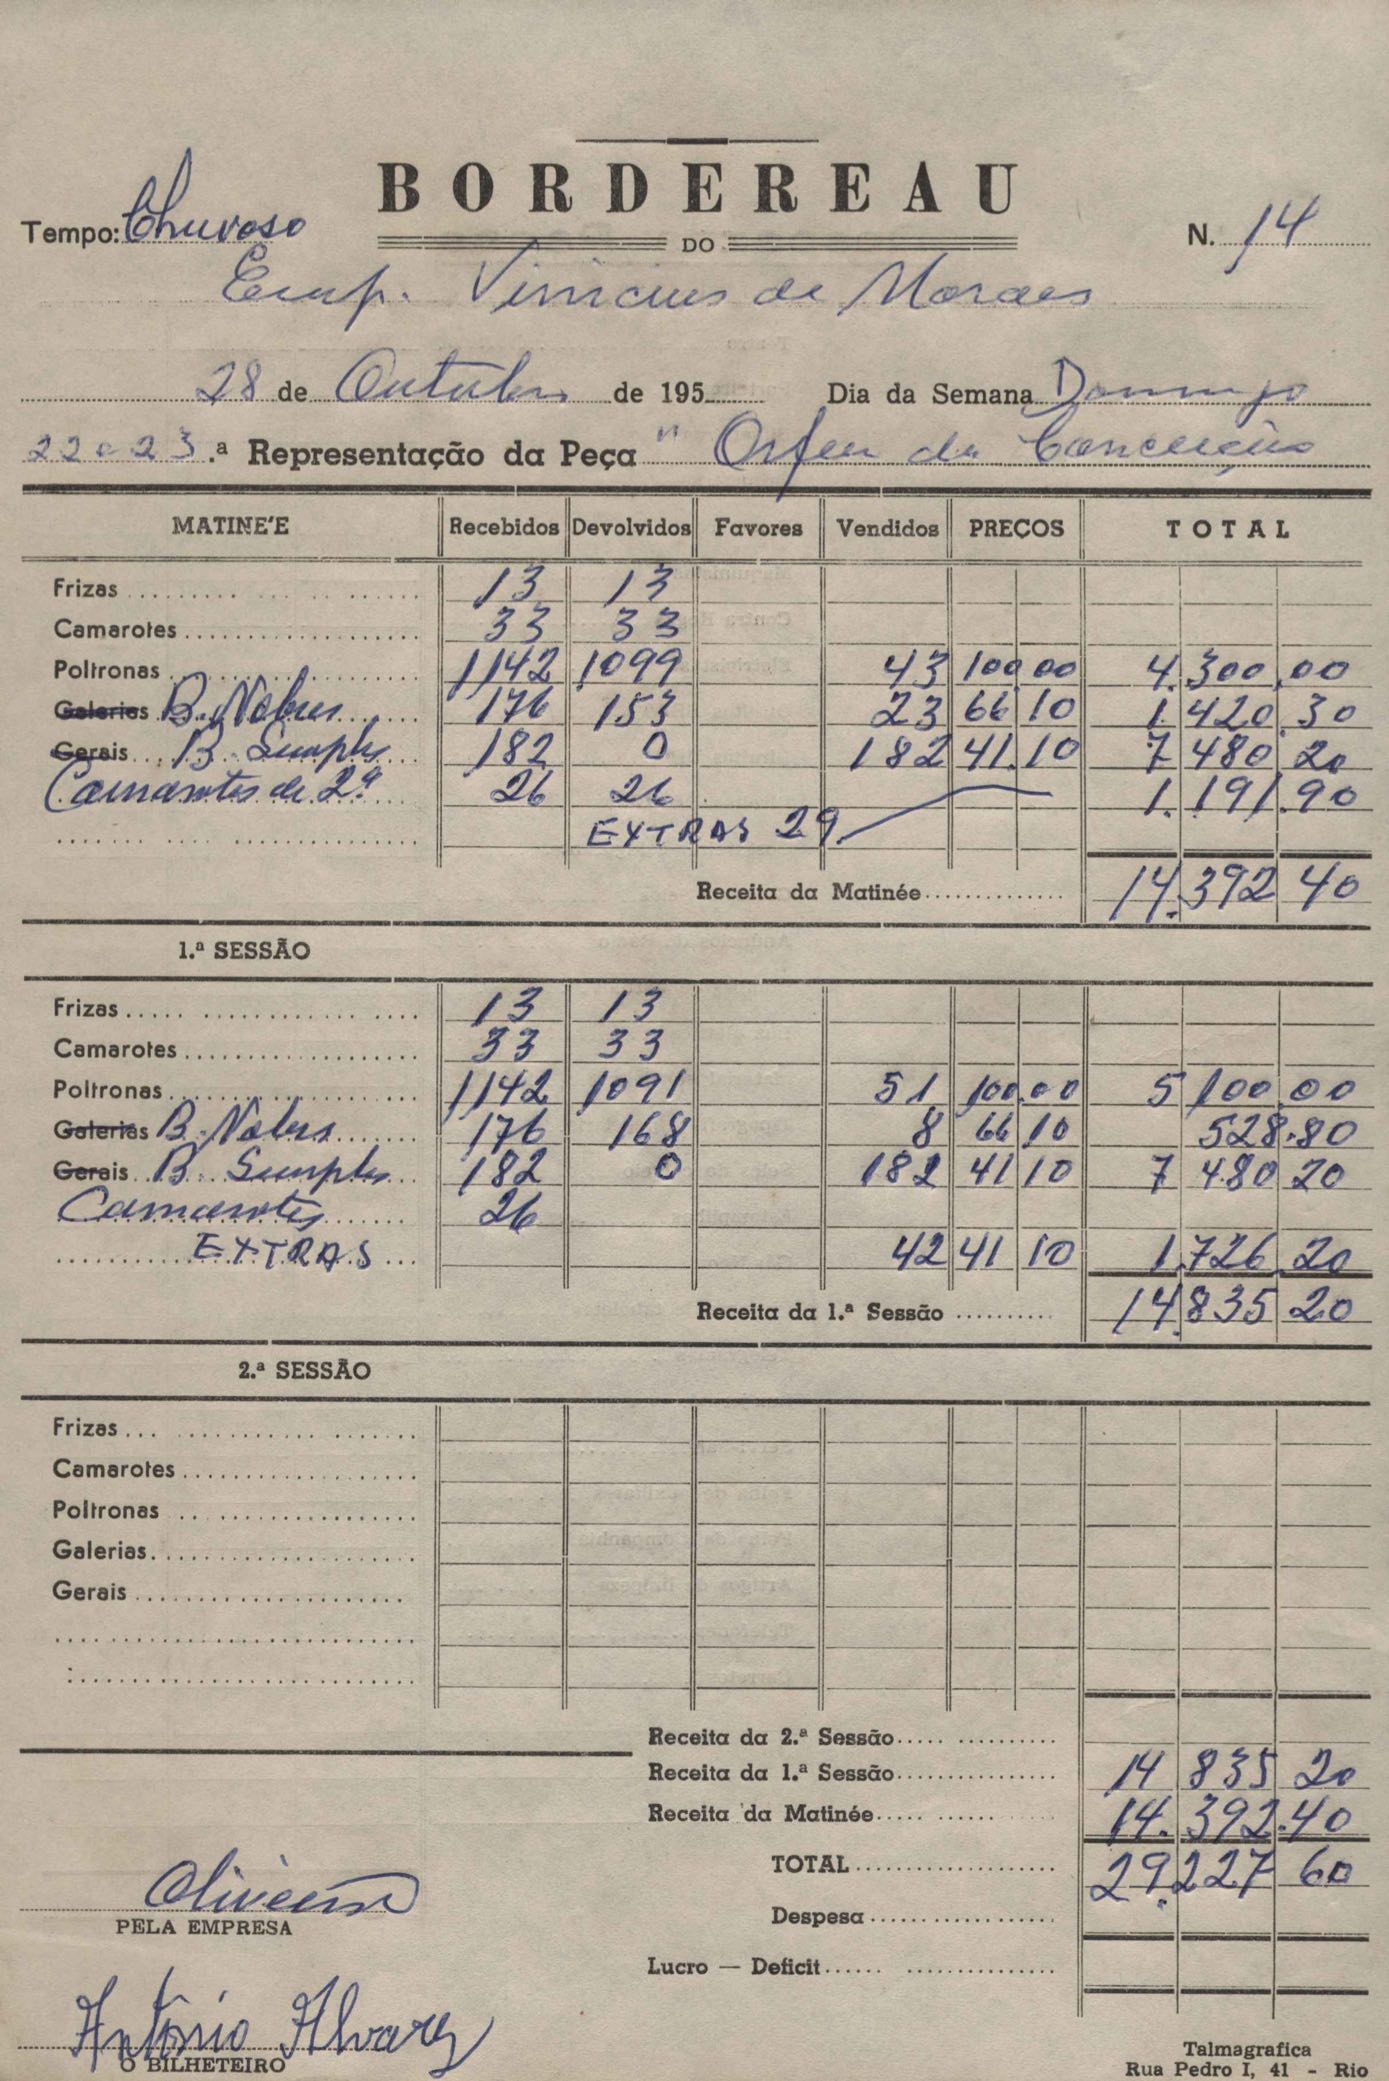 BORDEREAU
Tempo: Chuvoso
DO
N. 14
Emp. Vinicius de Moraes
28 de Outubro de 195 Dia da Semana Domingo
22 e 23.ª Representação da Peça " Orfeu da Conceição
MATINE'E Recebidos Devolvidos Favores Vendidos PREÇOS TOTAL
Frizas 13 13
Camarotes 33 33
Poltronas 1142 1099 43 100 00 4.300,00
Galerias B. Nobres 176 153 23 66 10 1.420,30
Gerais B. Simples 182 0 182 41.10 7 480 20
Camarotes de 2ª 26 26 1.191.90
EXTRAS 29
Receita da Matinée 14.392 40
1.ª SESSÃO
Frizas 13 13
Camarotes 33 33
Poltronas 1142 1091 51 100.00 5 100.00
Galerias B. Nobres 176 168 8 66 10 528.80
Gerais B. Simples 182 0 182 41 10 7 480 20
Camarotes 26
EXTRAS 42 41 10 1.726.20
Receita da 1.ª Sessão 14.835 20
2.ª SESSÃO
Frizas
Camarotes
Poltronas
Galerias
Gerais
Receita da 2.ª Sessão
Receita da 1.ª Sessão 14 835 20
Receita da Matinée 14.392.40
TOTAL 29.227 60
Despesa
Lucro — Deficit
PELA EMPRESA
Antônio Alvarez
O BILHETEIRO
Talmagrafica
Rua Pedro I, 41 - Rio